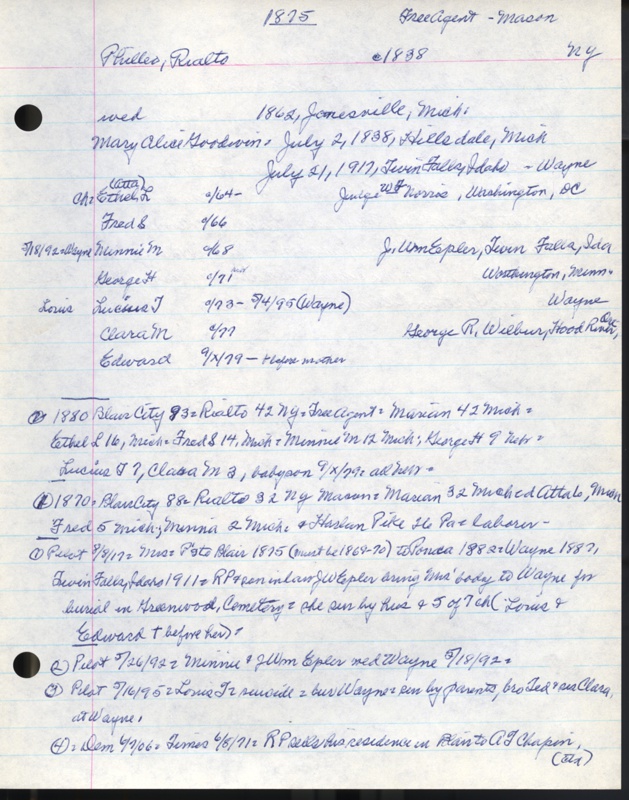 1875 Free Agent - Mason
Philleo, Rialto c1838 NY
wed 1862, Jonesville, Mich.
Mary Alice Goodwin, July 2, 1838, Hillsdale, Mich
July 21, 1917, Twin Falls, Idaho - Wayne
(Atta)
Ch= Ethel L c/64- Judge WF Norris, Washington, DC
Fred S c/66
5/18/92=Wayne Minnie M c/68 J. Wm Epler, Twin Falls, Ida
George H c/71 Worthington, Minn.
Louis Lucius T c/73- 5/4/95 (Wayne) Wayne
Clara M c/77 George R. Wilbur, Hood River, Ore
Edward 9/x/79- + before mother
1880 Blair City 93= Rialto 42 Ny= Free Agent= Marian 42 Mich=
Ethel L 16, Mich= Fred S 14, Mich= Minnie M 12 Mich; George H 9 Nebr=
Lucius T 7, Clara M 3, baby son 9/x/79= all Nebr=
1870= Blair City 88= Rialto 32 Ny Mason= Marian 32 Mich Atta 6, Mich
Fred 5 Mich; Minna 2 Mich. & Harlan Pike 26 Pa= laborer-
① Pilot 8/8/17= Mrs= P to Blair 1875 (must be 1869-70) to Ponca 1882= Wayne 1887,
Twin Falls, Idaho 1911= RP & son in law JW Epler bring Mrs' body to Wayne for
burial in Greenwood, Cemetery= she sur by hus & 5 of 7 ch (Louis &
Edward + before her)=
② Pilot 5/26/92= Minnie & J Wm Epler wed Wayne 5/18/92=
③ Pilot 5/16/95= Louis T= suicide= bur Wayne= sur by parents, bro Fred & sis Clara,
at Wayne.
④= Dem 4/7/06= Times 6/8/71= RP sells his residence in Blair to A T Chapin,